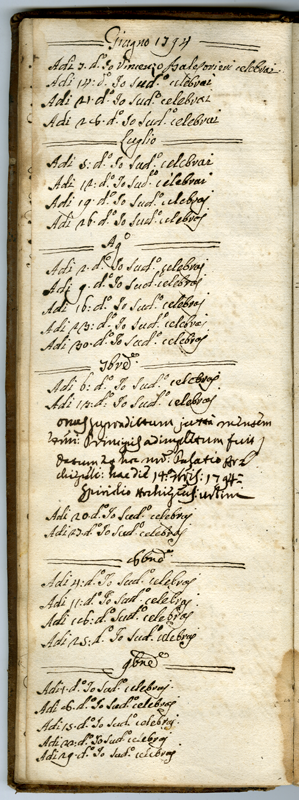 Giugno 1794
Adi 7. d.º Io Vincenzo celebrai
Adi 14: d.º Io Sud.º celebrai
Adi 21. d.º Io Sud.º celebrai
Adi 26. d.º Io Sud.º celebrai
Luglio
Adi 5: d.º Io Sud.º celebrai
Adi 12: d.º Io Sud.º celebrai
Adi 19: d.º Io Sud.º celebraj
Adi 26. d.º Io Sud.º celebraj
Ag.º
Adi 2: d.º Io Sud.º celebraj
Adi 9. d.º Io Sud.º celebraj
Adi 16: d.º Io Sud.º celebraj
Adi 23: d.º Io Sud.º celebrai
Adi 30: d.º Io Sud.º celebraj
7bre
Adi 6: d.º Io Sud.º celebraj
Adi 13: d.º Io Sud.º celebraj
onus supradittum juxta mensem
adimpletum fuit
Datum Palatio
hac die 14: 1794
Adi 20 d.º Io Sud.º celebraj
Adi 27. d.º Io Sud.º celebraj
8bre
Adi 4: d.º Io Sud.º celebraj
Adi 11: d.º Io Sud.º celebraj
Adi d.º Io Sud.º celebraj
Adi 25: d.º Io Sud.º celebraj
9bre
Adi 1. d.º Io Sud.º celebraj
Adi d.º Io Sud.º celebraj
Adi 15. d.º Io Sud.º celebraj
Adi 22: d.º Io Sud.º celebraj
Adi 29. d.º Io Sud.º celebraj